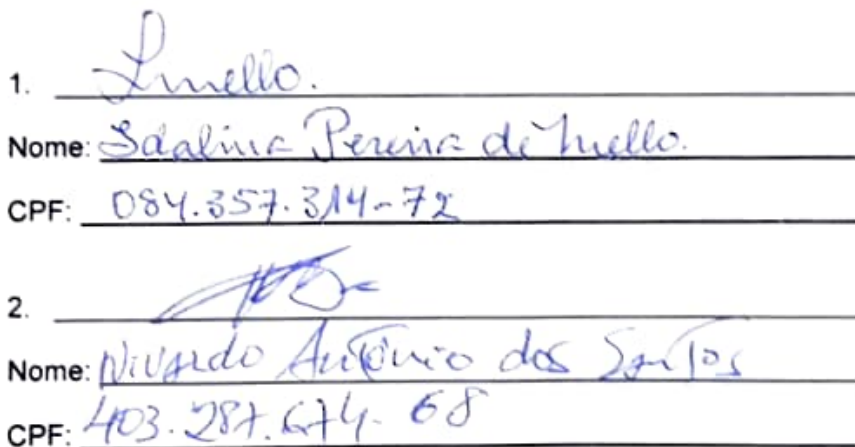 1. Imello.
Nome: Idalina Pereira de Mello.
CPF: 084.357.314-72
2.
Nome: Nivardo Antônio dos Santos
CPF: 403.287.674-68